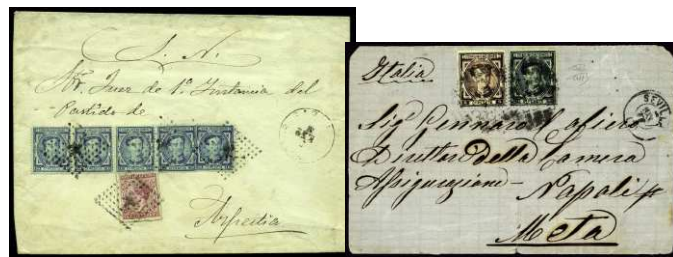 S. N.
Sr. Juez de 1ª Instancia del
Partido de
Italia
SEVILLA
Sigr Gennaro Cafiero
Direttor della Camera
Assicurazione - Napoli p
Meta